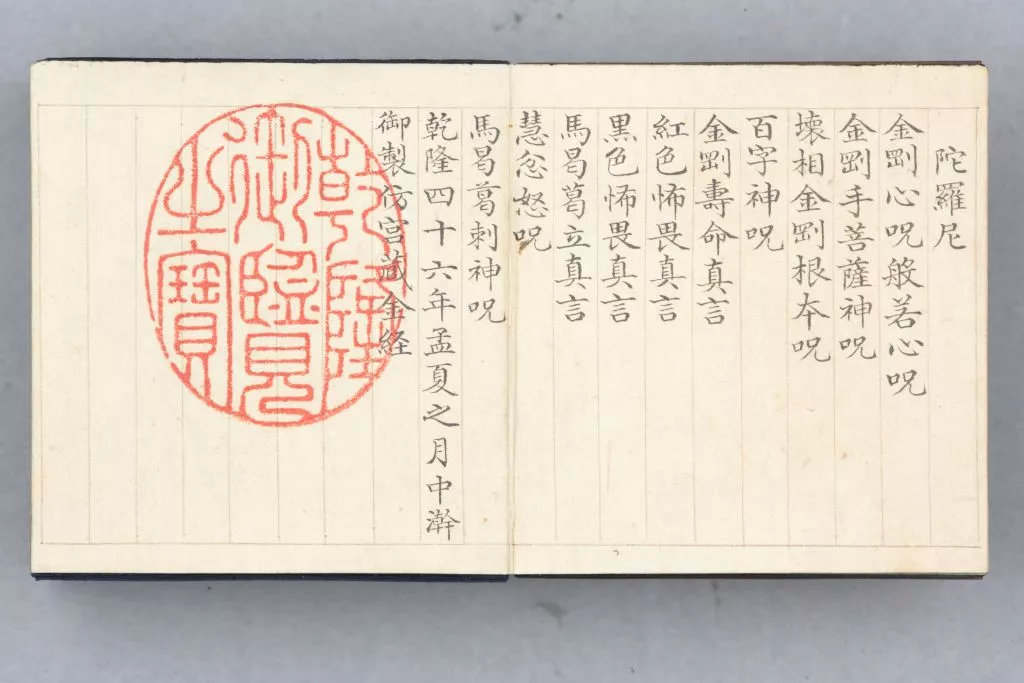 陀羅尼
金剛心呪般若心呪
金剛手菩薩神呪
壊相金剛根本呪
百字神呪
金剛壽命真言
紅色怖畏真言
黒色怖畏真言
馬曷葛立真言
慧忿怒呪
馬曷葛刺神呪
乾隆四十六年孟夏之月中澣
御製仿宫蔵金経
乾隆
御臨見
之寶